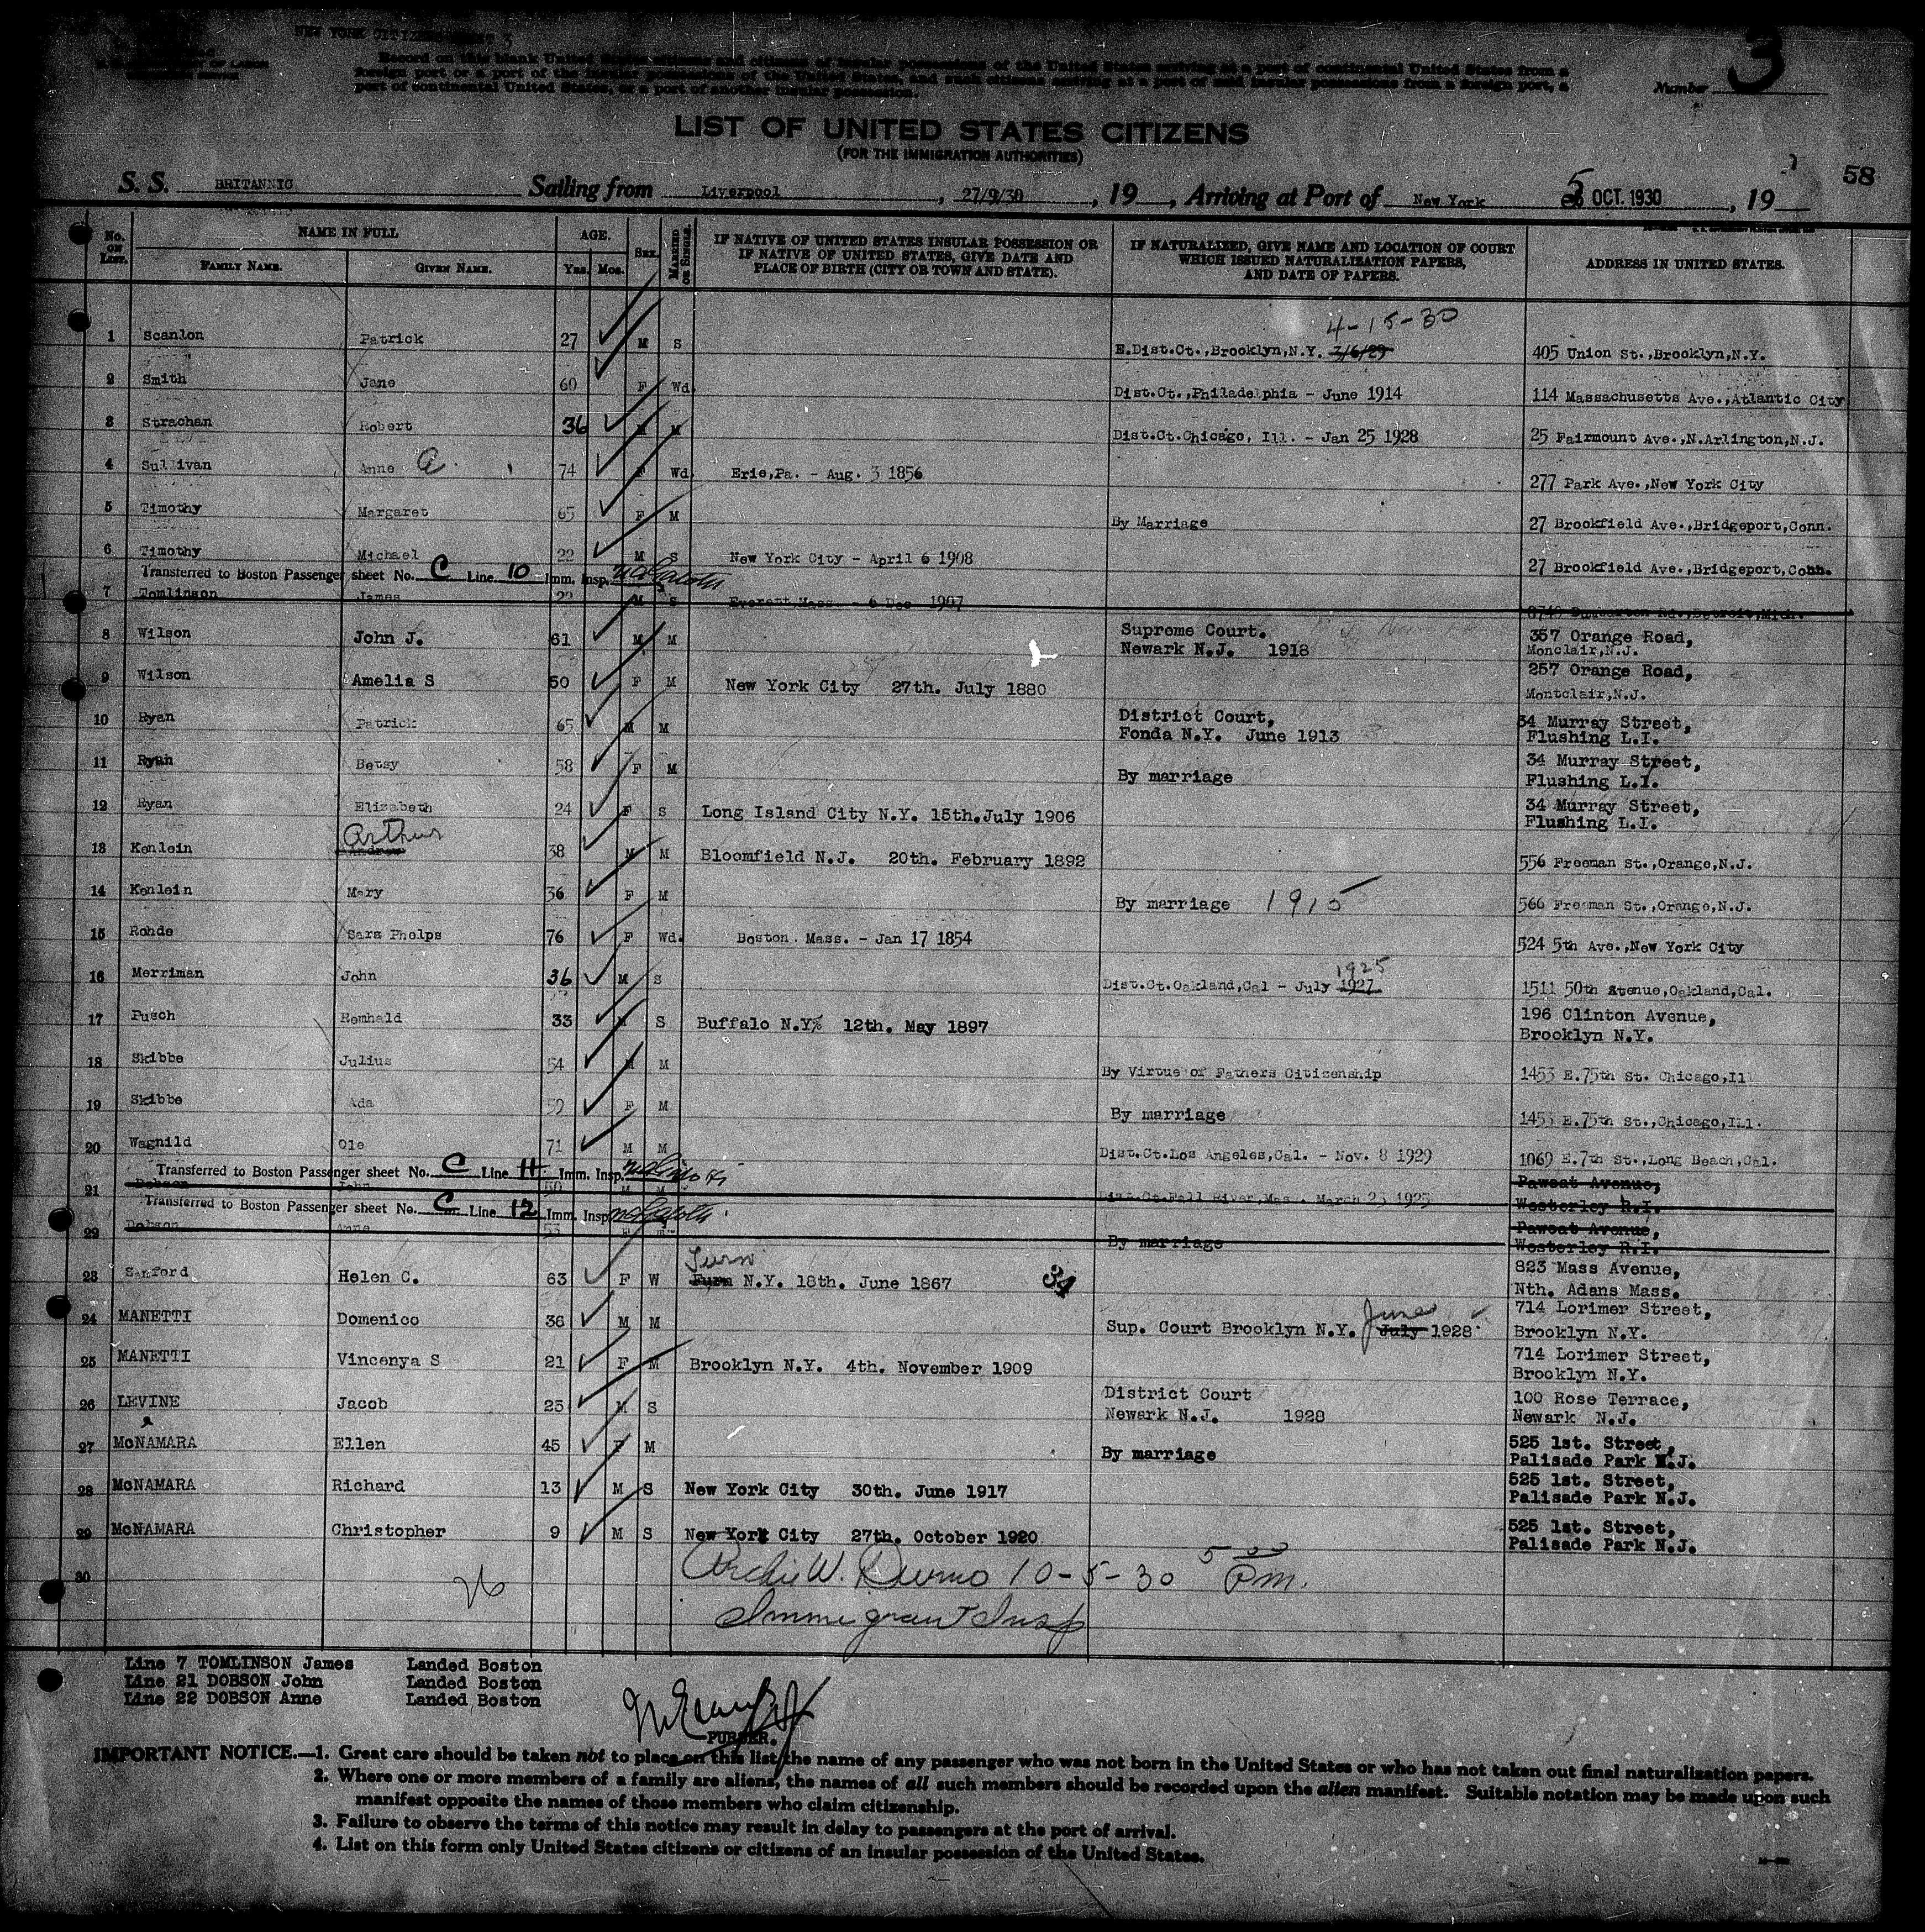 NEW YORK CITIZEN 3
Record on this blank United States citizens and citizens of insular possessions of the United States arriving at a port of continental United States from a
foreign port or a port of the insular possessions of the United States, and such citizens arriving at a port of said insular possessions from a foreign port, a
port of continental United States, or a port of another insular possession.
Number 3
LIST OF UNITED STATES CITIZENS
(FOR THE IMMIGRATION AUTHORITIES)
58
S. S. BRITANNIC Sailing from Liverpool, 27/9/30, 19 , Arriving at Port of New York 5 OCT. 1930, 19
No. ON LIST. NAME IN FULL AGE. SEX. MARRIED OR SINGLE. IF NATIVE OF UNITED STATES INSULAR POSSESSION OR IF NATIVE OF UNITED STATES, GIVE DATE AND PLACE OF BIRTH (CITY OR TOWN AND STATE). IF NATURALIZED, GIVE NAME AND LOCATION OF COURT WHICH ISSUED NATURALIZATION PAPERS, AND DATE OF PAPERS. ADDRESS IN UNITED STATES.
FAMILY NAME. GIVEN NAME. Yrs. Mos.
4-15-30
1 Scanlon Patrick 27 M S E.Dist.Ct.,Brooklyn,N.Y. 3/6/29 405 Union St.,Brooklyn,N.Y.
2 Smith Jane 60 F Wd. Dist.Ct.,Philadelphia - June 1914 114 Massachusetts Ave.,Atlantic City
3 Strachan Robert 36 M M Dist.Ct.Chicago, Ill. - Jan 25 1928 25 Fairmount Ave.,N.Arlington,N.J.
4 Sullivan Anne a. 74 F Wd. Erie,Pa. - Aug. 3 1856 277 Park Ave.,New York City
5 Timothy Margaret 65 F M By Marriage 27 Brookfield Ave.,Bridgeport,Conn.
6 Timothy Michael 22 M S New York City - April 6 1908 27 Brookfield Ave.,Bridgeport,Conn.
Transferred to Boston Passenger sheet No. C Line 10 Imm. Insp.
7 Tomlinson James 22 M S Everett,Mass. - 6 Dec 1907 8749 Dumbarton Rd.,Detroit,Mich.
8 Wilson John J. 61 M M Supreme Court. Newark N.J. 1918 357 Orange Road, Monclair,N.J.
9 Wilson Amelia S 50 F M New York City 27th. July 1880 257 Orange Road, Montclair,N.J.
10 Ryan Patrick 65 M M District Court, Fonda N.Y. June 1913 34 Murray Street, Flushing L.I.
11 Ryan Betsy 58 F M By marriage 34 Murray Street, Flushing L.I.
12 Ryan Elizabeth 24 F S Long Island City N.Y. 15th.July 1906 34 Murray Street, Flushing L.I.
Arthur
13 Kenlein Andrew 38 M M Bloomfield N.J. 20th. February 1892 556 Freeman St.,Orange,N.J.
14 Kenlein Mary 36 F M By marriage 1915 566 Freeman St.,Orange,N.J.
15 Rohde Sara Phelps 76 F Wd. Boston. Mass. - Jan 17 1854 524 5th Ave.,New York City
1925
16 Merriman John 36 M S Dist.Ct.Oakland,Cal - July 1927 1511 50th Avenue,Oakland,Cal.
17 Pusch Romhald 33 M S Buffalo N.Y% 12th. May 1897 196 Clinton Avenue, Brooklyn N.Y.
18 Skibbe Julius 54 M M By Virtue of Fathers Citizenship 1453 E.75th St. Chicago,Ill
19 Skibbe Ada 59 F M By marriage 1453 E.75th St.,Chicago,Ill.
20 Wagnild Ole 71 M M Dist.Ct.Los Angeles,Cal. - Nov. 8 1929 1069 E.7th St.,Long Beach,Cal.
Transferred to Boston Passenger sheet No. C Line 11 Imm. Insp.
21 Dobson John 50 M M Dist.Ct.Fall River,Mas. March 23 1925 Pawcat Avenue, Westerley R.I.
Transferred to Boston Passenger sheet No. C Line 12 Imm. Insp.
22 Dobson Anne 53 F M By marriage Pawcat Avenue, Westerley R.I.
23 Sanford Helen C. 63 F W N.Y. 18th. June 1867 34 823 Mass Avenue, Nth. Adans Mass.
June
24 MANETTI Domenico 36 M M Sup. Court Brooklyn N.Y. July 1928 714 Lorimer Street, Brooklyn N.Y.
25 MANETTI Vincenya S 21 F M Brooklyn N.Y. 4th. November 1909 714 Lorimer Street, Brooklyn N.Y.
26 LEVINE Jacob 23 M S District Court Newark N.J. 1928 100 Rose Terrace, Newark N.J.
27 McNAMARA Ellen 45 F M By marriage 525 1st. Street, Palisade Park N.J.
28 McNAMARA Richard 13 M S New York City 30th. June 1917 525 1st. Street, Palisade Park N.J.
29 McNAMARA Christopher 9 M S New York City 27th. October 1920 525 1st. Street, Palisade Park N.J.
30 26 Archie W. Durno 10-5-30 5 00 P.m.
Immigrant Insp
Line 7 TOMLINSON James Landed Boston
Line 21 DOBSON John Landed Boston
Line 22 DOBSON Anne Landed Boston
PURSER.
IMPORTANT NOTICE.—1. Great care should be taken not to place on this list the name of any passenger who was not born in the United States or who has not taken out final naturalization papers.
2. Where one or more members of a family are aliens, the names of all such members should be recorded upon the alien manifest. Suitable notation may be made upon such
manifest opposite the names of those members who claim citizenship.
3. Failure to observe the terms of this notice may result in delay to passengers at the port of arrival.
4. List on this form only United States citizens or citizens of an insular possession of the United States.